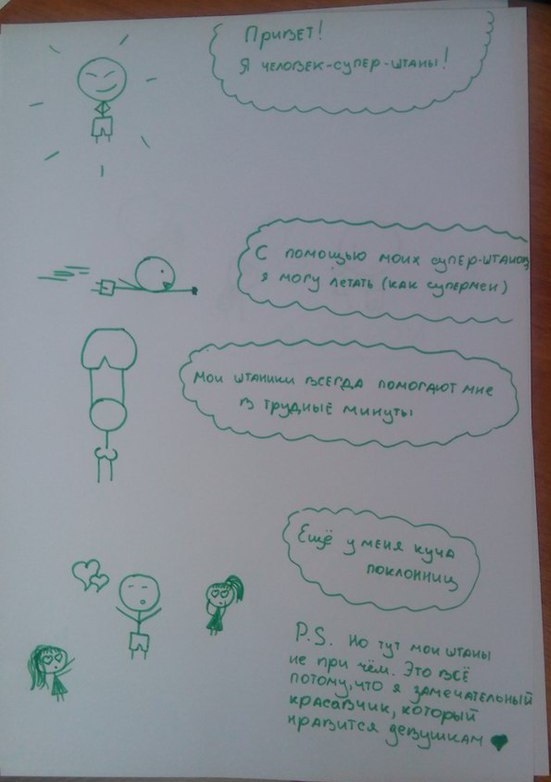 Привет!
Я человек-супер-штаны!
С помощью моих супер-штанов
я могу летать (как супермен)
Мои штаники всегда помогают мне
в трудные минуты
Ещё у меня куча
поклонниц
P.S. Но тут мои штаны
не при чём. Это всё
потому, что я замечательный
красавчик, который
нравится девушкам